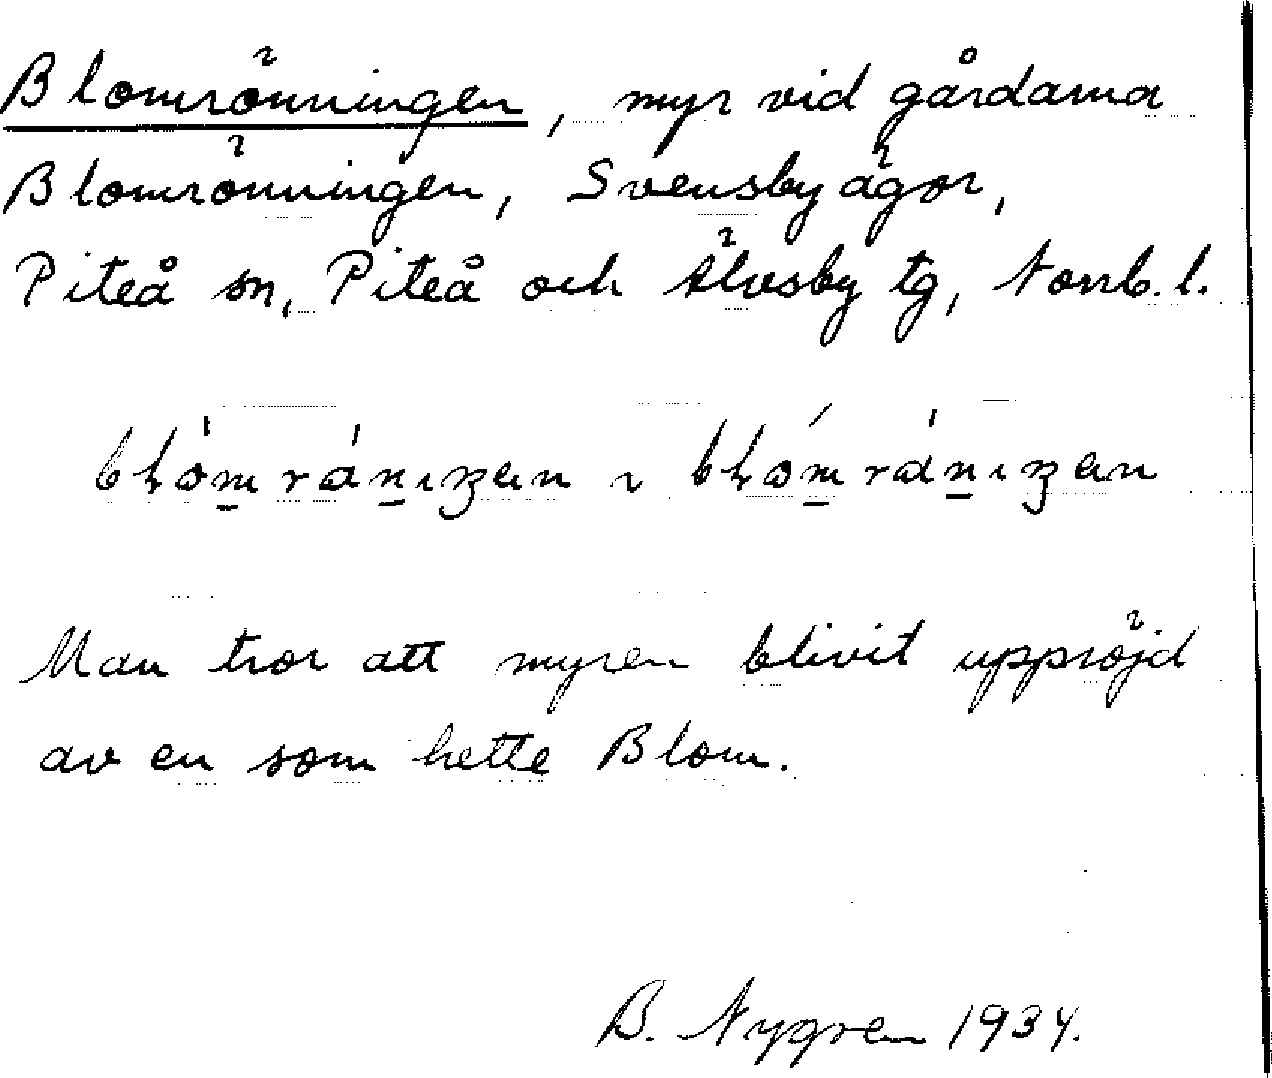 Blomrönningen, myr vid gårdarna
Blomrönningen, Svensby ägor,
Piteå sn, Piteå och Älvsby tg, Norrb. l.
Man tror att myren blivit uppröjd
av en som hette Blom.
B. Nygren 1934.